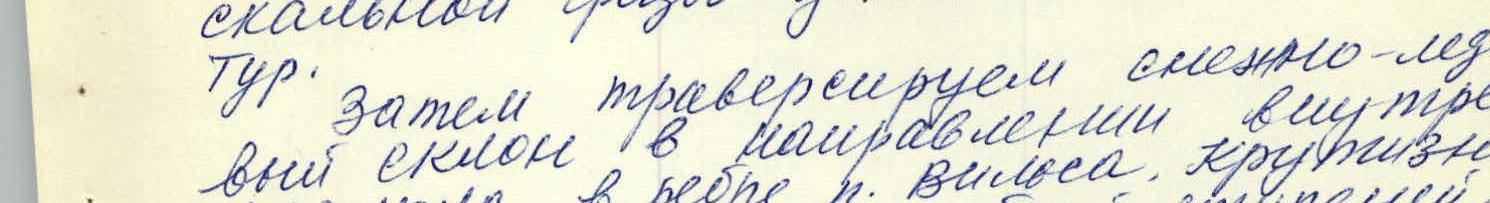 скальной гряды
тур.
Затем траверсируем снежно-лед
вый склон в направлении внутре
в ребре п. Вильса. Крутизн